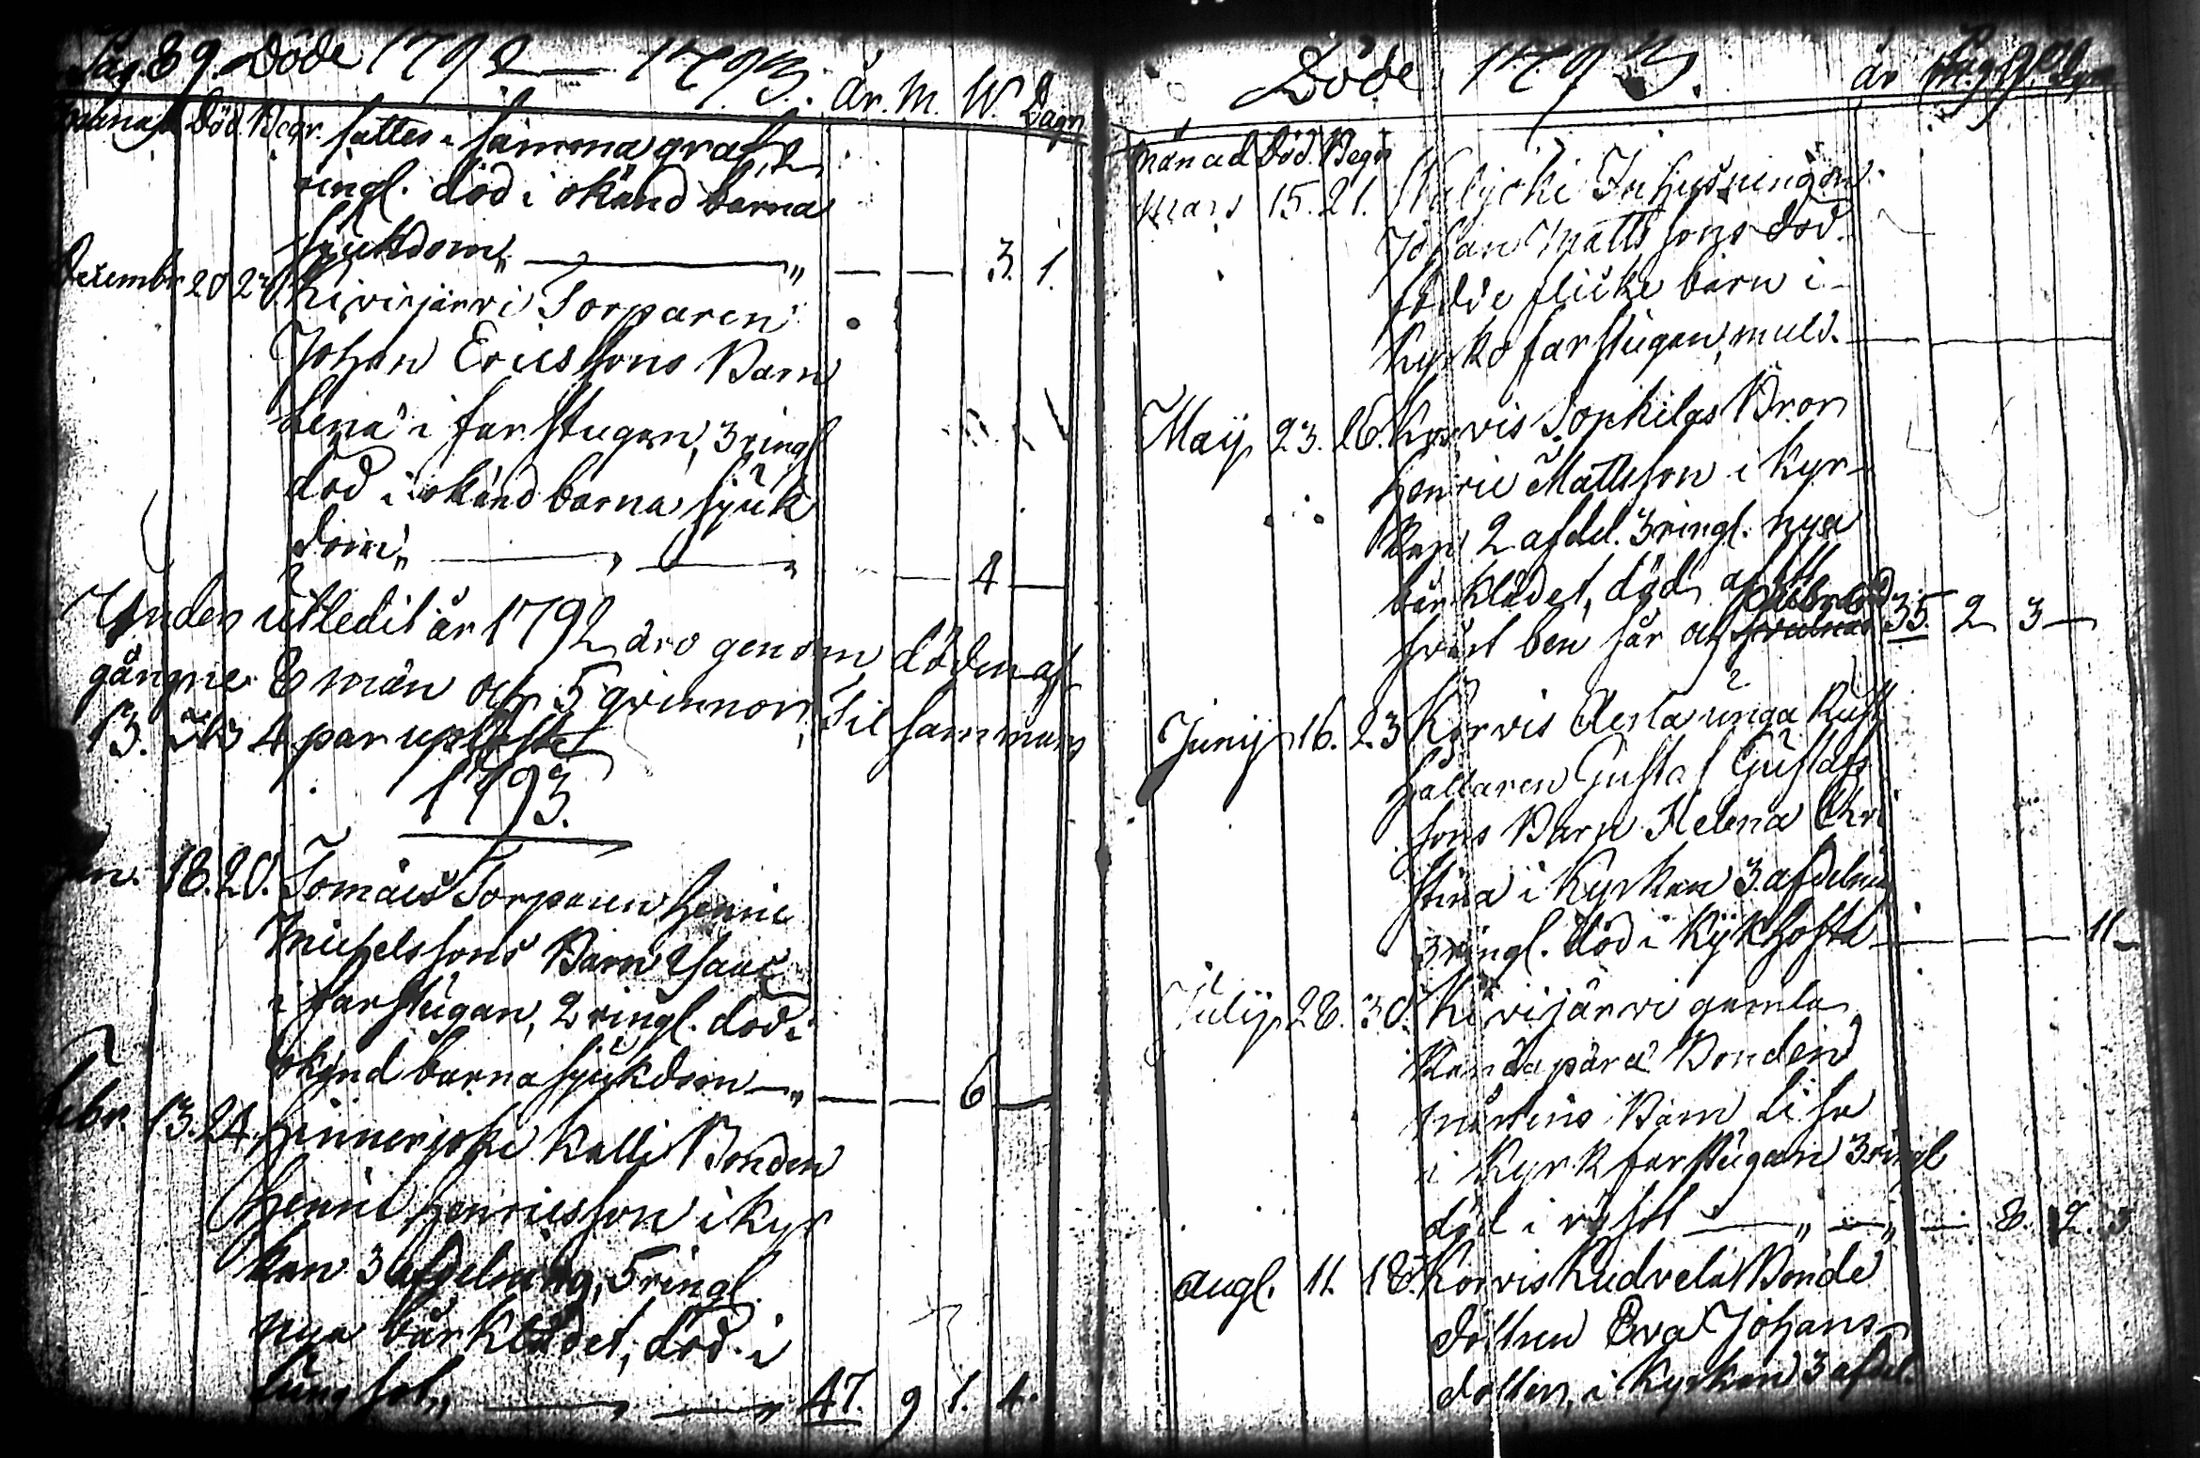 Pag. 89. Döde 1792 — 1793. år. M. W. Dagr
Månad Död Begr. sattes i samma graf, 2
ringl. död i okänd barna
sjukdom, — 3. 1.
Decembr 20 2 Kivijärvi Torparen
Johan Ericssons Barn
Lena i farstugan, 3 ringl
död i okänd barna sjuk
dom, — 4 —
Under utledit år 1792 äro genom döden af
gångne 8 män och 5 qvinnor, til samman
13. 4 par
1793.
18. 20. Torparen Henric
Michelssons Barn Isaac
i farstugan, 2 ringl. död i
okänd barnasjukdom — 6 —
Febr. 13. 24. Hinnerjoki Kalli Bonden
Henric Henricsson i Kyr
kan 3 afdelning, 5 ringl.
nya bårklädet, död i
lungsot, — 47. 9 1. 4.
Döde 1793. år
Månad Död. Begr
Mars 15. 21. Inhysningen
Johan Mattssons död
födde flicke barn i
Kyrko farstugan, muld. —
Maij 23. 26. Korvis Bror
Henric Mattsson i Kyr-
kan 2 afdel. 3 ringl. nya
bårklädet, död af
svårt ben sår och 35. 2 3 —
Junij 16. 23 Korvis unga Rust
hållaren Gustaf Gustafs
sons Barn Helena Chri
stina i Kyrkan 3. afdelning
3 ringl. död i Kykhosta — 11 —
Julij 28. 30. Kivijärvi gamla
Bonden
Mårtens Barn Lisa
i Kyrk farstugan 3 ringl
död i rösot — 8. 2.
Augl. 11. 18. Korvis Bonde
dottren Eva Johans
dotter, i Kyrkan 3 afdel.